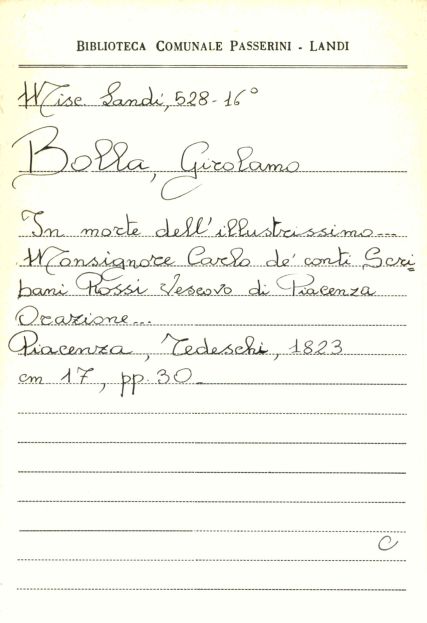 BIBLIOTECA COMUNALE PASSERINI - LANDI
Misc. Landi, 528-16°
Bolla, Girolamo
In morte dell'illustrissimo...
Monsignore Carlo de' conti Scri=
bani Rossi Vescovo di Piacenza
Orazione...
Piacenza, Tedeschi, 1823
cm 17, pp. 30_
C